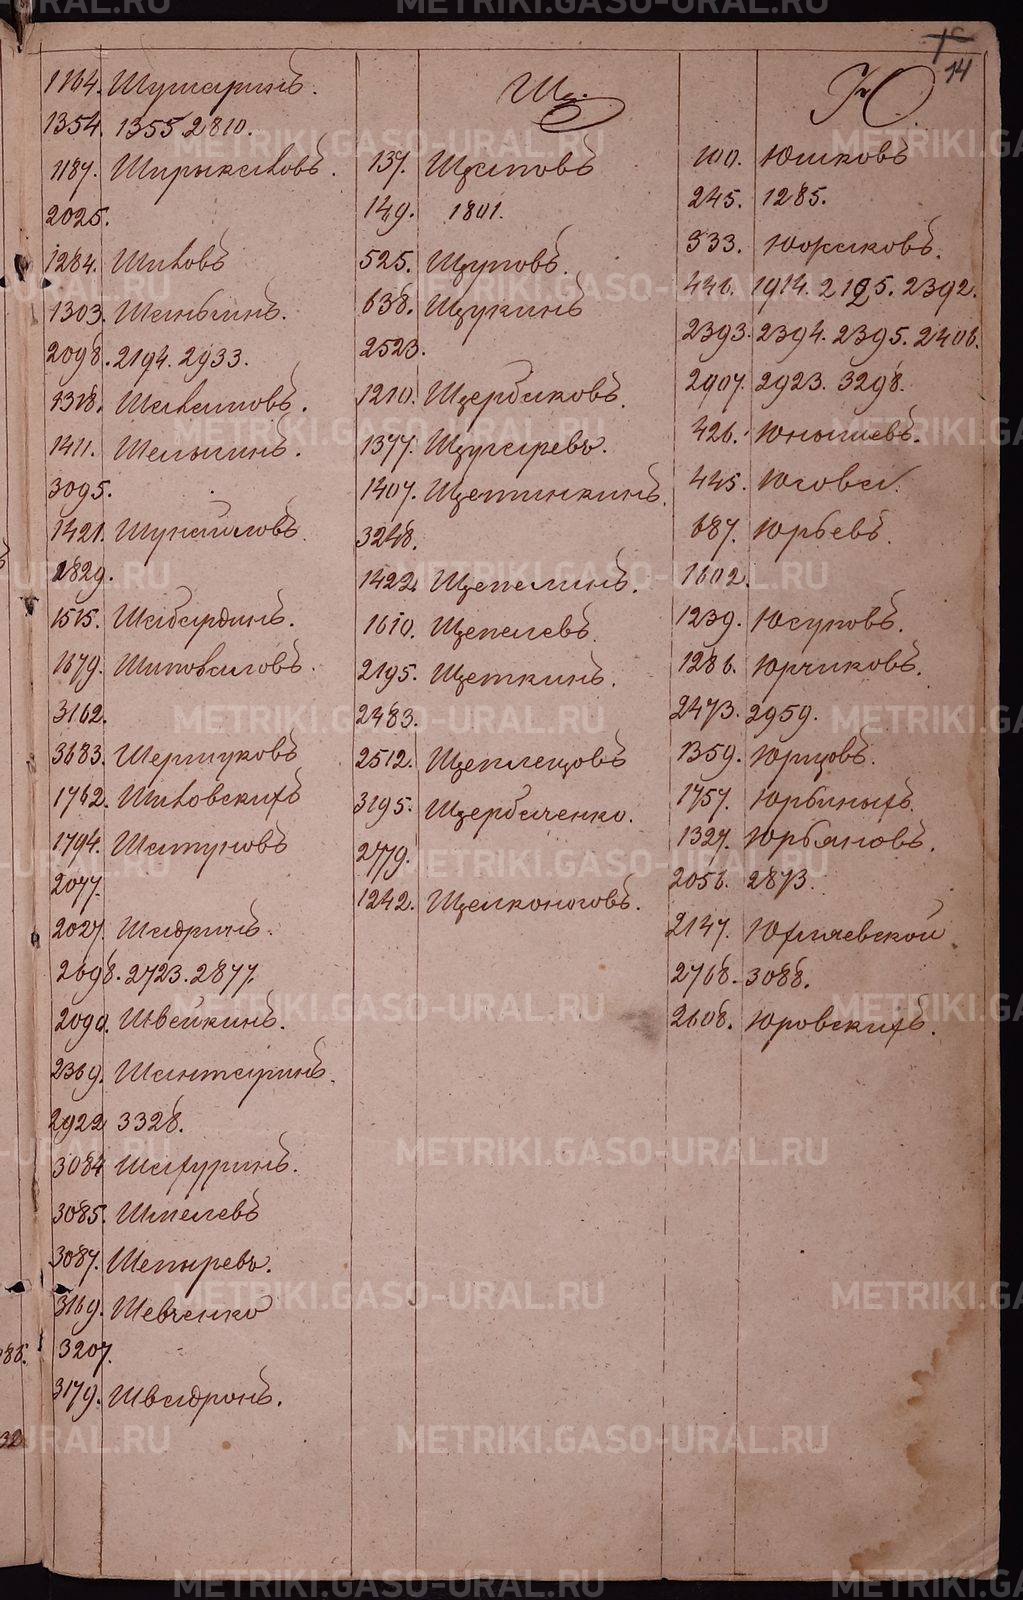 14
1164. Шумаринъ.
1354. 1355 2810.
1187. Ширыкаловъ.
2025.
1284. Шиловъ
1303. Шаньгинъ.
2098. 2194. 2933.
1318. Шаламовъ.
1411. Шалыгинъ.
3095.
1421. Шунайловъ
1829.
1515. Шабардинъ.
1679. Шиповаловъ.
3162.
3683. Шерстуковъ
1762. Шиловскихъ
1794. Шатуновъ
2077.
2027. Шадринъ.
2698. 2723. 2877.
2090. Швейкинъ.
2369. Шантаринъ.
2922 3328.
3084 Шафуринъ.
3085. Шмелевъ
3087. Шапыревъ.
3169. Шевченко
3207.
3179. Швадронъ.
Щ.
137. Щаповъ
149. 1801.
525. Щуповъ.
638. Щукинъ
2523.
1210. Щербаковъ.
1377. Щугаревъ.
1407. Щетинкинъ.
3248.
1422. Щепелинъ.
1610. Щепелевъ.
2195. Щеткинъ.
2483.
2512. Щеплецовъ
3195. Щербаченко.
2779.
1242. Щелконоговъ.
Ю.
100. Юшковъ
245. 1285.
333. Южаковъ.
446. 1914. 2195. 2392.
2393. 2394. 2395. 2406.
2907. 2923. 3298.
426. Юнышевъ.
445. Югова.
687. Юрьевъ.
1602.
1239. Юсуповъ.
1286. Юрчиковъ.
2473. 2959.
1359. Юрцовъ.
1757. Юрьиныхъ.
1327. Юрьяновъ.
2056. 2873.
2147. Юхлявской
2768. 3088.
2608. Юровскихъ.
METRIKI.GASO-URAL.RU